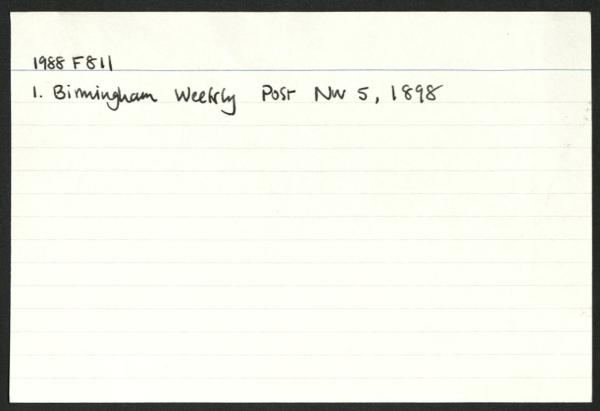 1988 F811
1. Birmingham Weekly Post Nov 5, 1898